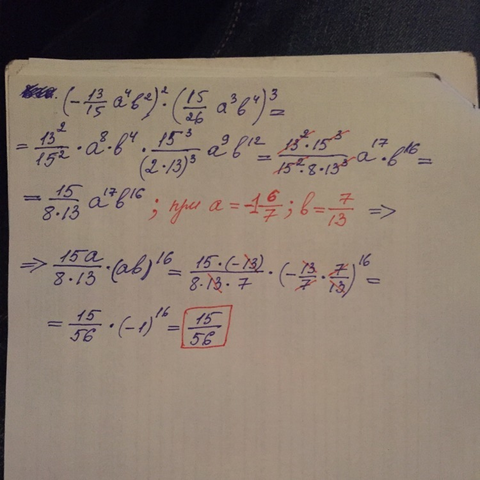 (-13/15 a⁴b²)² · (15/26 a³b⁴)³ =
= 13²/15² · a⁸ · b⁴ · 15³/(2·13)³ a⁹b¹² = 13²·15³/15²·8·13³ a¹⁷·b¹⁶ =
= 15/8·13 a¹⁷b¹⁶ ; при a = -1 6/7 ; b = 7/13 =>
=> 15a/8·13 · (ab)¹⁶ = 15·(-13)/8·13·7 · (-13/7 · 7/13)¹⁶ =
= 15/56 · (-1)¹⁶ = 15/56